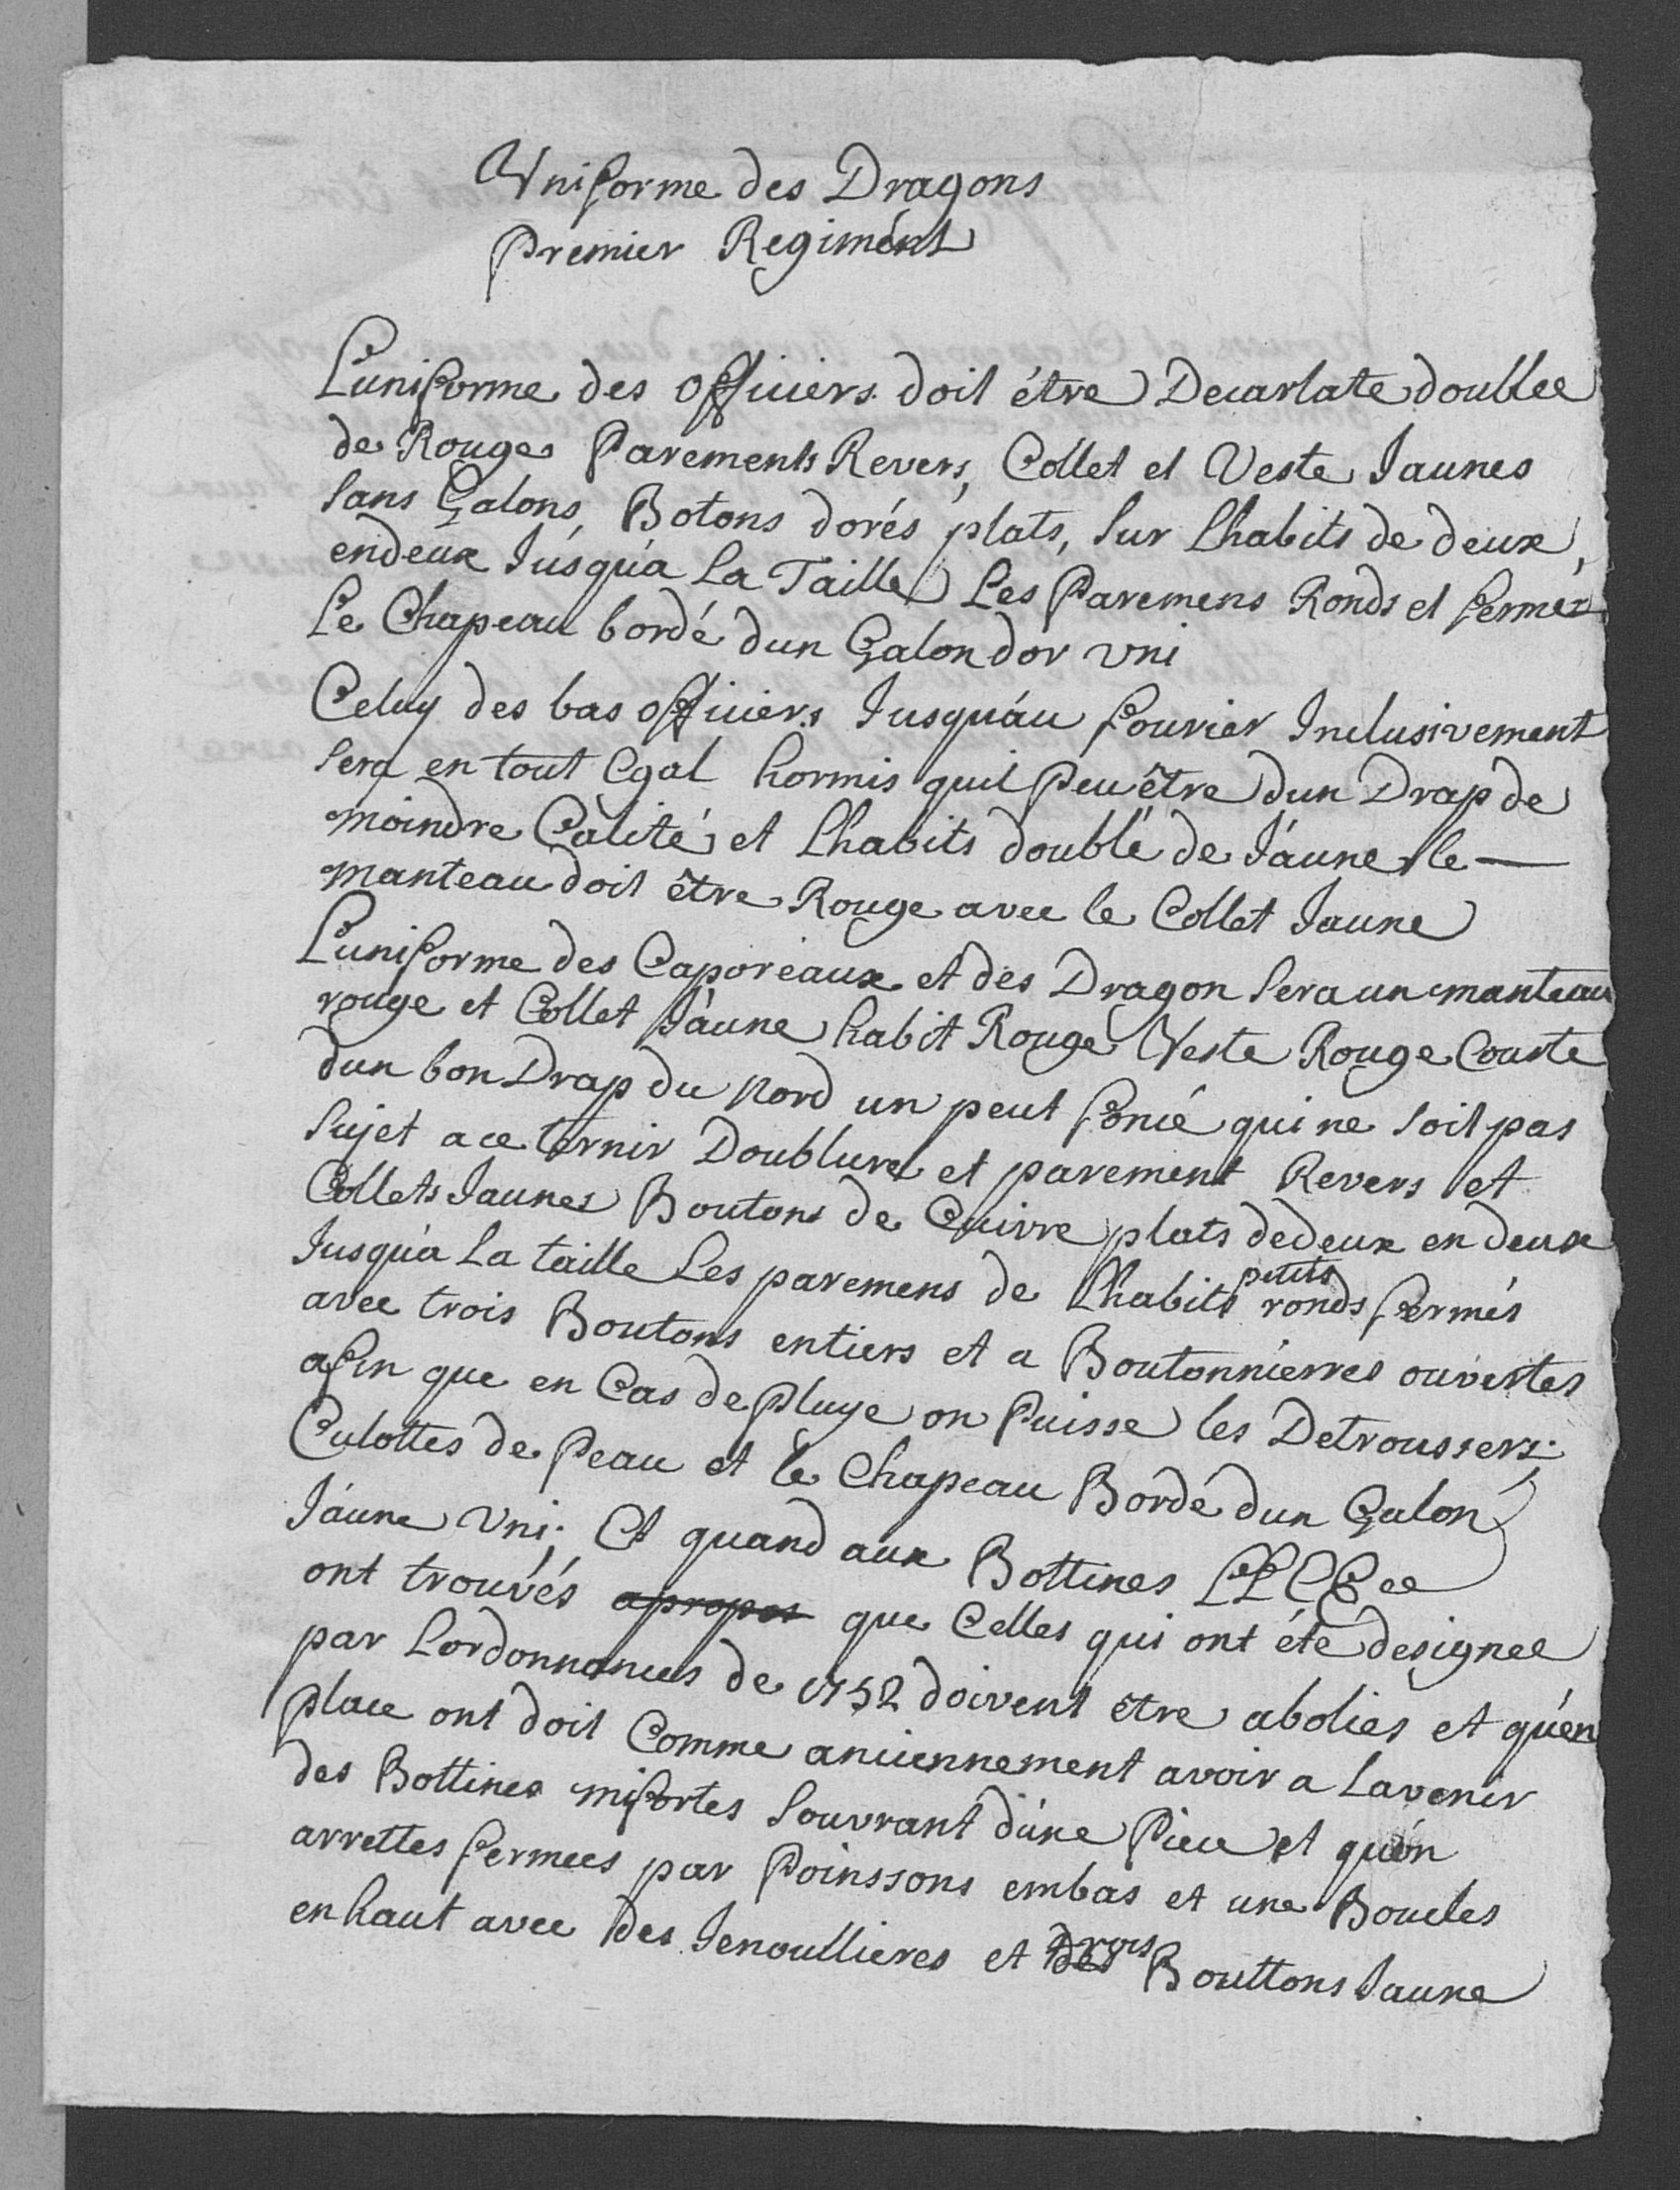 Uniforme des Dragons
Premier Regimént
L'uniforme des officiers doit étre Decarlate doublee
de Rouges Parements Revers, Collet et Veste Jaunes
sans Galons, Botons dorés plats, sur Lhabits de deux,
endeux Jusqu'a La Taille Les Paremens Ronds et fermez
Le Chapeau bordé dun Galon dor uni
Celuy des bas officiers Jusquáu fourier Inclusivement
sera en tout Egal hormis quil Peu être dun Drap de
moindre Calité et Lhabits doublé de Jáune le —
manteau doit être Rouge avec le Collet Jaune
L'uniforme des Caporeaux et des Dragon sera un manteau
rouge et Collet Jáune habit Rouge Veste Rouge Courte
dun bon Drap du Nord un peut foncé qui ne soit pas
sujet a ce ternir Doublure et parement Revers et
Collets Jaunes Boutons de Cuivre plats dedeux en deux
Jusqu'a La taille Les paremens de Lhabits petits ronds fermés
avec trois Boutons entiers et a Boutonnierres ouvertes
afin que en Cas de Pluye on Puisse les Detroussers.
Culottes de Peau et le Chapeau Bordé dun Galon
Jáune Uni; Et quand aux Bottines LL EE ee
ont trouvés apropos que Celles qui ont été designee
par Lordonnances de 1752 doivent être abolies et qu'en
place ont doit Comme anciennement avoir a Lavenir
des Bottines mifortes souvrant d'une Piece et quón
arrettes fermees par Poinssons embas et une Boucles
en haut avec des Jenoullieres et trois Bouttons Jaune